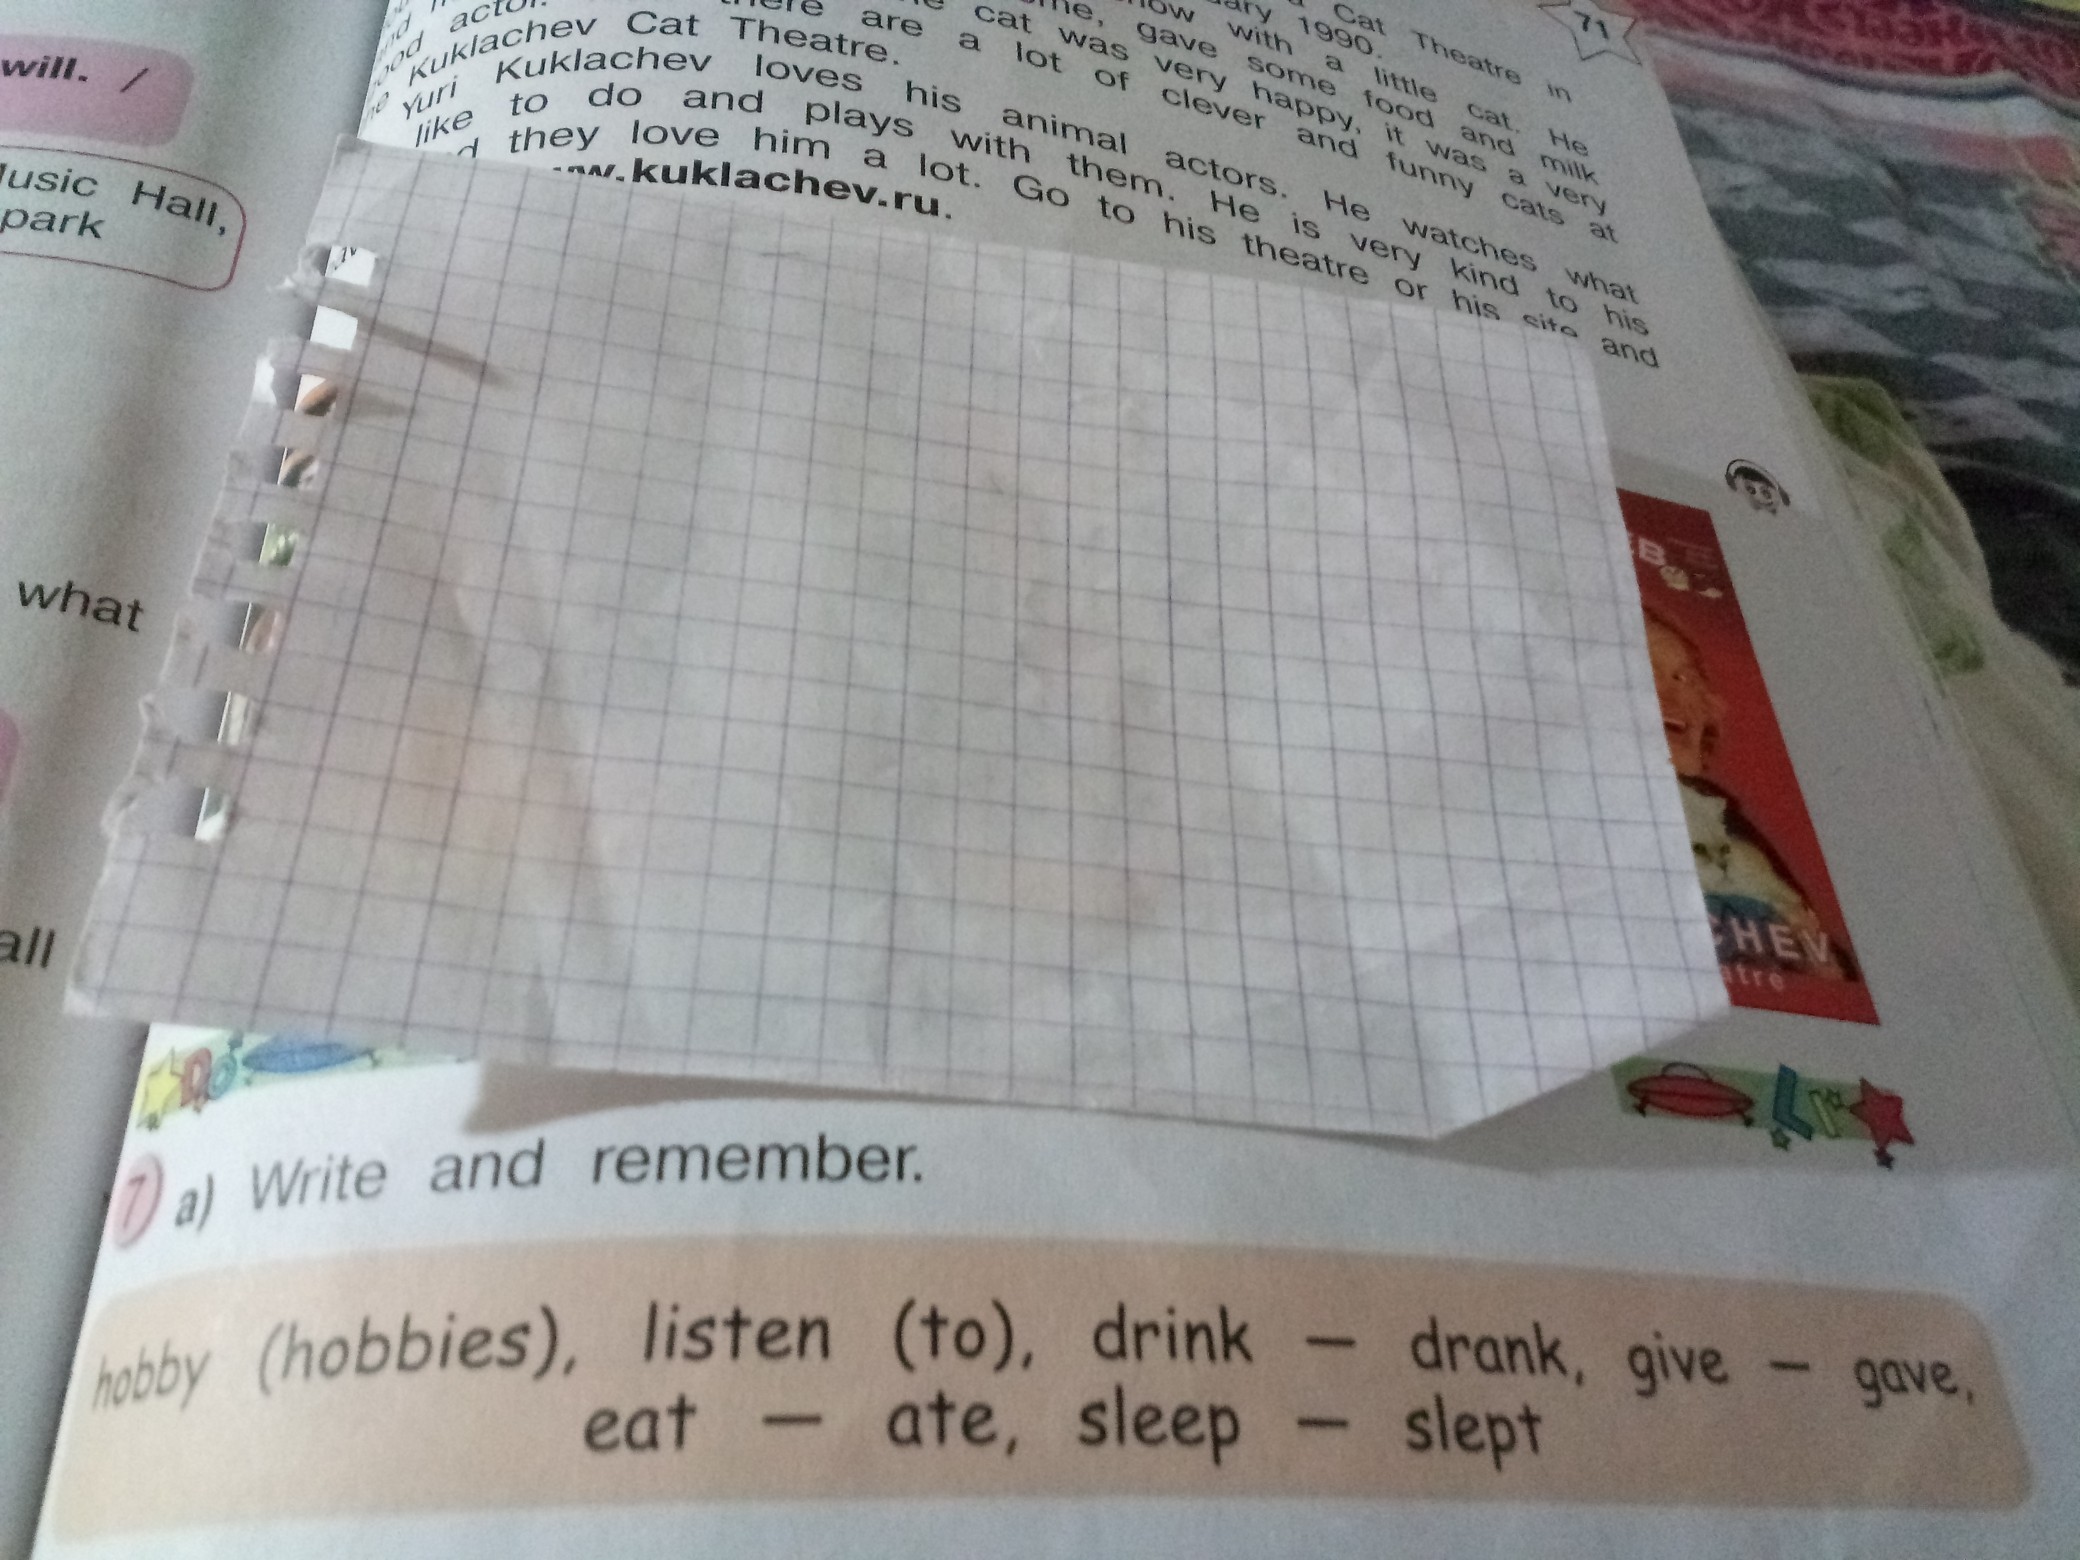 will. /
Music Hall,
park
what
all
71
Cat Theatre in
1990.
with a little cat. He
gave some food and milk
cat was very happy, it was a very
there are a lot of clever and funny cats at
Kuklachev Cat Theatre.
Yuri Kuklachev loves his animal actors. He watches what
like to do and plays with them. He is very kind to his
they love him a lot. Go to his theatre or his site and
www.kuklachev.ru.
7 a) Write and remember.
hobby (hobbies), listen (to), drink — drank, give — gave,
eat — ate, sleep — slept